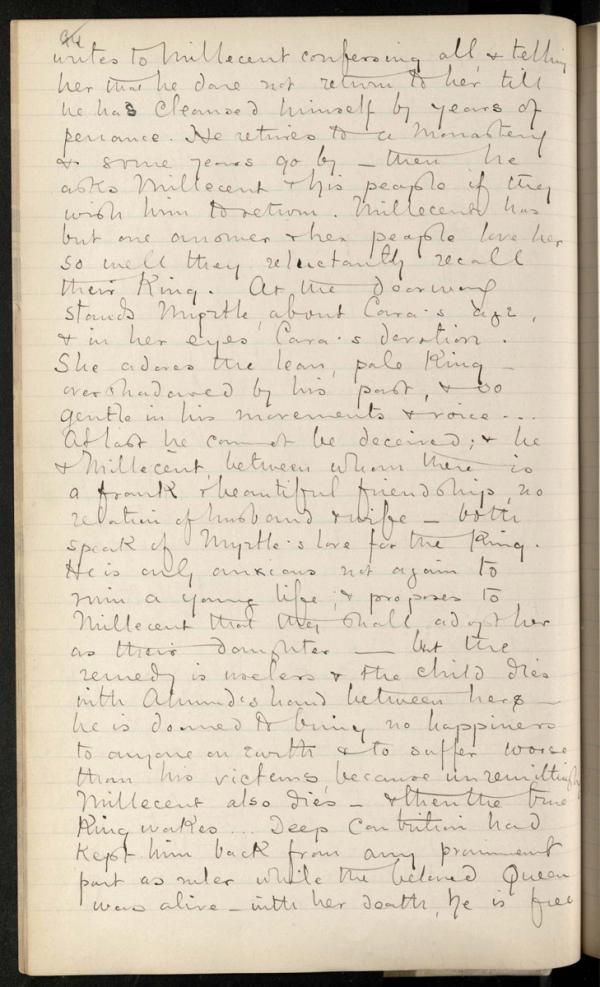 94
writes to Millecent confessing all, & telling
her that he dare not return to her till
he has cleansed himself by years of
penance. He retires to a Monastery
& some years go by – then he
asks Millecent & his people if they
wish him to return. Millecent has
but one answer & her people love her
so well they reluctantly recall
their King. At the doorway
stands Myrtle, about Cara's age,
& in her eyes Cara's devotion.
She adores the lean, pale King –
overshadowed by his past, & so
gentle in his movements & voice...
At last he cannot be deceived; & he
& Millecent, between whom there is
a frank & beautiful friendship, no
relation of husband & wife – both
speak of Myrtle's love for the King.
He is only anxious not again to
ruin a young life, & proposes to
Millecent that they shall adopt her
as their daughter – but the
remedy is useless & the child dies
with Almund's hand between hers –
he is doomed to bring no happiness
to anyone on earth & to suffer worse
than his victims, because unremittingly
Millecent also dies – & then the true
King wakes... Deep Contrition had
kept him back from any prominent
part as ruler while the beloved Queen
was alive – with her death, he is free